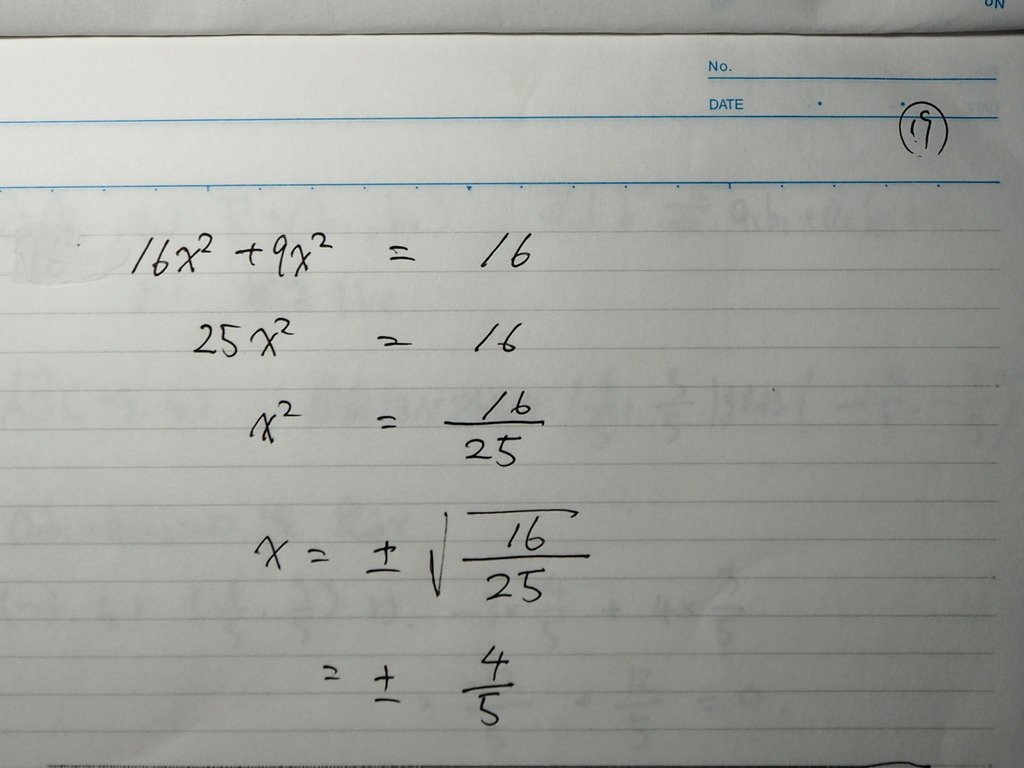 ON
No.
DATE
19
16x² + 9x² = 16
25x² = 16
x² = 16/25
x = ± √(16/25)
= ± 4/5